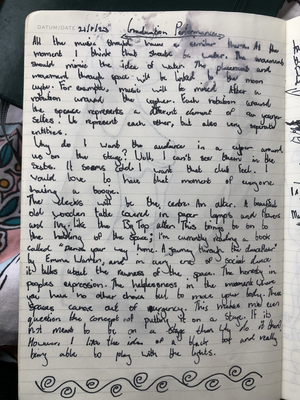 DATUM/DATE 22/8/23 Graduation Performance
All the music should have a similar theme. At the
moment I think that should be water. The movement
should mimic the idea of water. The placement and
movement through space will be linked to the moon
cycle. For example, music will be mixed. After a
rotation around the Each rotation around
the space represents a different element of our younger
selves & to represent each other, but also very separate
entities.
Why do I want the audience in a circle around
us on the stage? Well, I can't see them in the
seats. It seems cold. I want that club feel. I
would love to have that moment of everyone
having a boogie.
The decks will be the centre. An alter. A beautiful
old wooden table covered in paper lamps and flowers
and My like the Big Top alter. This brings be on to
the building of the space; I'm currently reading a book
called "Dance your way home. A journey through the dancefloor"
by Emma Warren, and in own era of social dance
it talks about the rawness of the space. The honesty in
peoples expression. The helplessness in the moment where
you have no other choice but to move your body. These
spaces came out of urgency. This makes me even
question the concept of putting it on a stage. If its
not meant to be on a stage then why do it there?
However, I like the idea of a black box and really
being able to play with the lights.